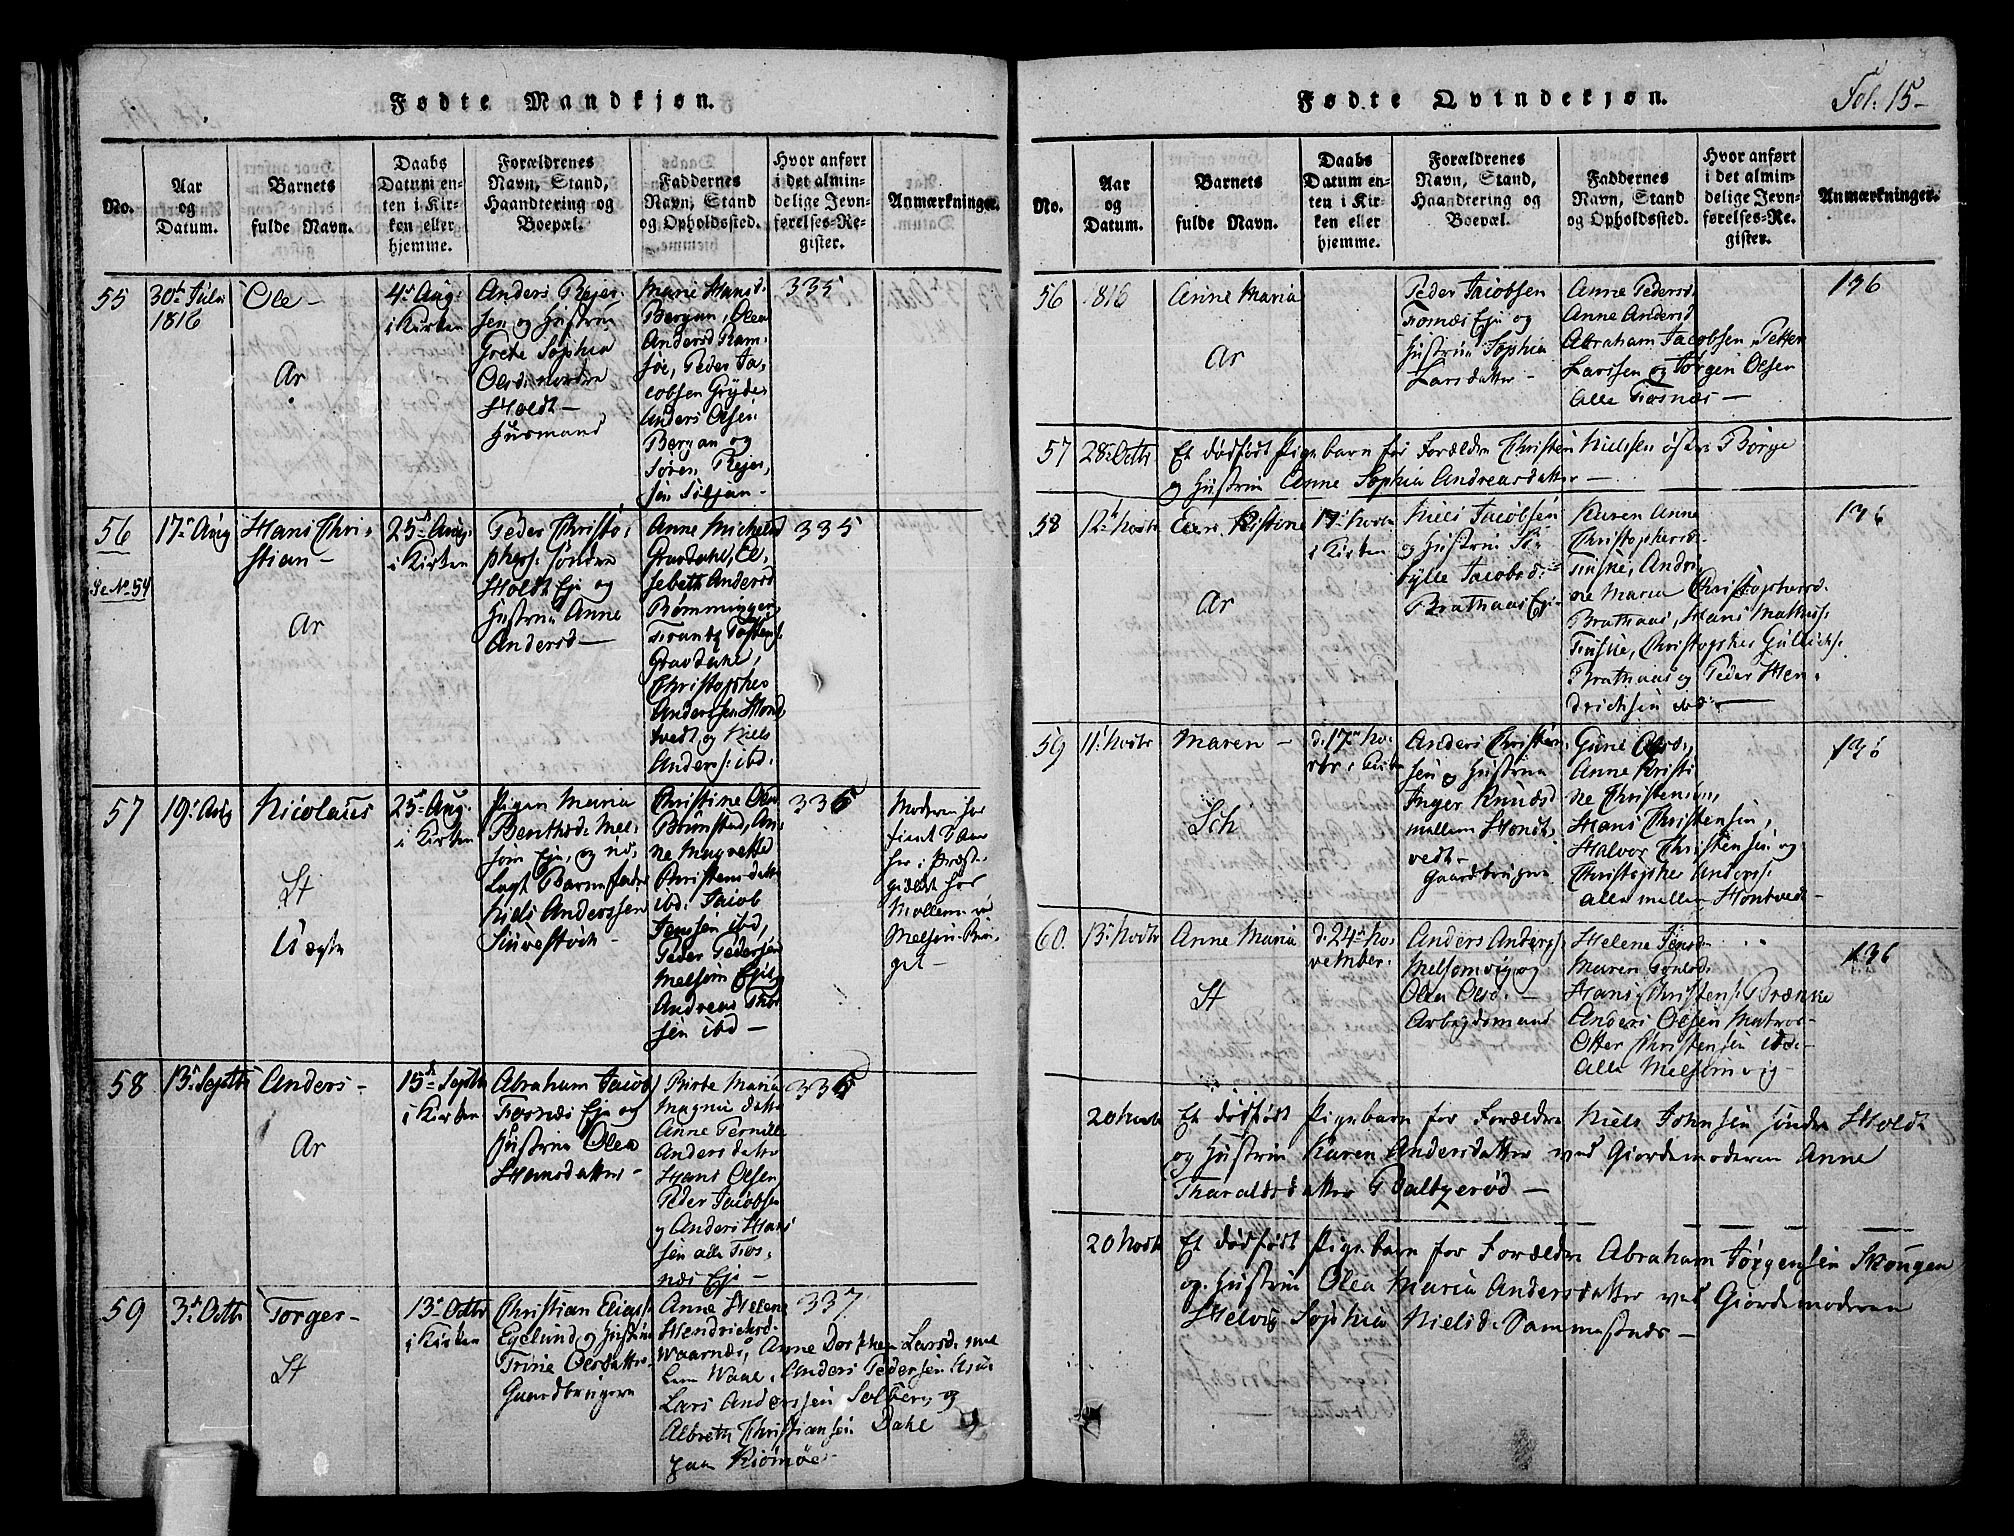 Fødte Mandkjøn.
No.
Aar
og
Datum.
Barnets
fulde Navn.
Daabs
Datum en-
ten i Kir-
ken eller
hjemme.
Forældrenes
Navn, Stand,
Haandtering og
Boepæl.
Faddernes
Navn, Stand
og Opholdssted.
Hvor anført
i det almin-
delige Jevn-
førelses-Re-
gister.
Anmærkninger.
55
30te Julii
1816
Ole -
Ar
4de Aug:
i Kirken
Anders Rejer-
sen og Hustrue
Grete Sophia
Olsd: nordre
Holdt -
Huusmand
Marie Hansd.
Bergan, Olea
Andersd Ram-
søe, Peder Ja-
cobsen Gryde
Anders Olsen
Bergan og
Søren Rejer-
sen Siljan -
335
56
Se No. 54
17de Aug
Hans Chri-
stian -
Ar
25de Aug:
i Kirken
Peder Christo-
phers: søndre
Holdt Eje og
Hustrue Anne
Andersd -
Anne Michelsd
Gravdahl, El-
sebeth Andersd
Rømminggen
Frantz Tostens:
Gravdahl,
Christopher
Anderssen Hond-
tvedt og Niels
Anders: ibd.
335
57
19de Aug
Nicolaus
St
Uægte
25de Aug.
i Kirken
Pigen Maria
Benthsd: Mel-
som Eje, og ud-
lagt Barnefader
Niels Anderssen
Christine Olsd
Brunstad, An-
ne Magrethe
Christensdatter
ibd: Jacob
Jenssen ibd,
Peder Pedersen
Melsom Ejeog
Andreas Thor-
sen ibd -
336
Moderen har
tient
her i Præste-
gieldet har
Mellem
Melsom
get -
58
13de Septbr
Anders -
Ar
15de Septbr
i Kirken
Abraham Jacobs
Fosnæs Eje og
Hustrue Olea
Hansdatter -
Birte Maria
Magnus datter
Anne Pernille
Andersdatter
Hans Olsen
Peder Jacobsen
og Anders Han-
sen alle Fos-
næs Eje -
336
59
3de Octbr
Torger -
St
13de Octbr
i Kirken
Christian Elias:
Egelund og Hustrue
Trine Olesdatter
Gaardbruger
Anne Helene
Hendrichsd.
Waarnæs, Anne Dorthea Larsd. mel
lem Waale, Anders Pedersen
Lars Anderssen Solberg og
Albreth Christiansen Dahl
paa Niømøe
337
Fødte Qvindekjøn.
Fol: 15 -
No.
Aar
og
Datum.
Barnets
fulde Navn.
Daabs
Datum en-
ten i Kir-
ken eller
hjemme.
Forældrenes
Navn, Stand,
Haandtering og
Boepæl.
Faddernes
Navn, Stand
og Opholdssted.
Hvor anført
i det almin-
delige Jevn-
førelses-Re-
gister.
Anmærkninger.
56
816
Anne Maria
Ar
Peder Jacobsen
Fosnæs Eje og
Hustrue Sophia
Larsdatter -
Anne Pedersd.
Anne Andersd
Abraham Jacobsen, Petter
Larssen og Jørgen Olsen
alle Fosnæs -
136
57
28de Octbr.
Et dødfødt Pigebarn for Forældre Christen Nielssen østre Borge
og Hustrue Anne Sophia Andreasdatter -
58
12te Novbr
Kistine
Ar
17de Novbr
i Kirken
Niels Jacobsen
og Hustrue Si-
bylle Jacobsd:
Brathaas Eje -
Karen Anne
Christophersd.
Fuske, Andri-
ne Maria Christophersd.
Brathaas, Hans Mathis:
Fuske, Christopher Gulbrichs:
Brathaas og Peder Hen-
drichsen ibd: -
136
59
11te Novbr
Maren -
Sch
d. 17de No-
vbr i Kirken
Anders Christen-
sen og Hustrue
Inger Knudsd
mellem Hondt-
vedt -
Gaardbruger
Gune Olsd,
Anne Kristi-
ne Christensen,
Hans Christensen,
Halvor Christensen og
Christopher Anders:
alle mellem Hontvedt -
136
60.
13de Novbr
Anne Maria
St
d. 24de No-
vember.
Anders Anders:
Melsomvig og
Olea Olsd. -
Arbejdsmand
Helene Jensd
Maren Poulsd.
Hans Christens: Brænne
Anders Olsen Matros
Otter Christensen ibd -
alle Melsomvig -
136
20 Novbr
Et dødfødt Pigebarn for Forældre Niels Johnsen søndre Holdt
og Hustrue Karen Andersdatter ved Giordemoderen Anne
Tharaldsdatter Baltzerød -
20 Novbr
Et dødfødt Pigebarn for Forældre Abraham Jørgensen Skougen
og Hustrue Olea Maria Andersdatter ved Giordemoderen
Helvig Sophia Nielsd. Dammestræde -